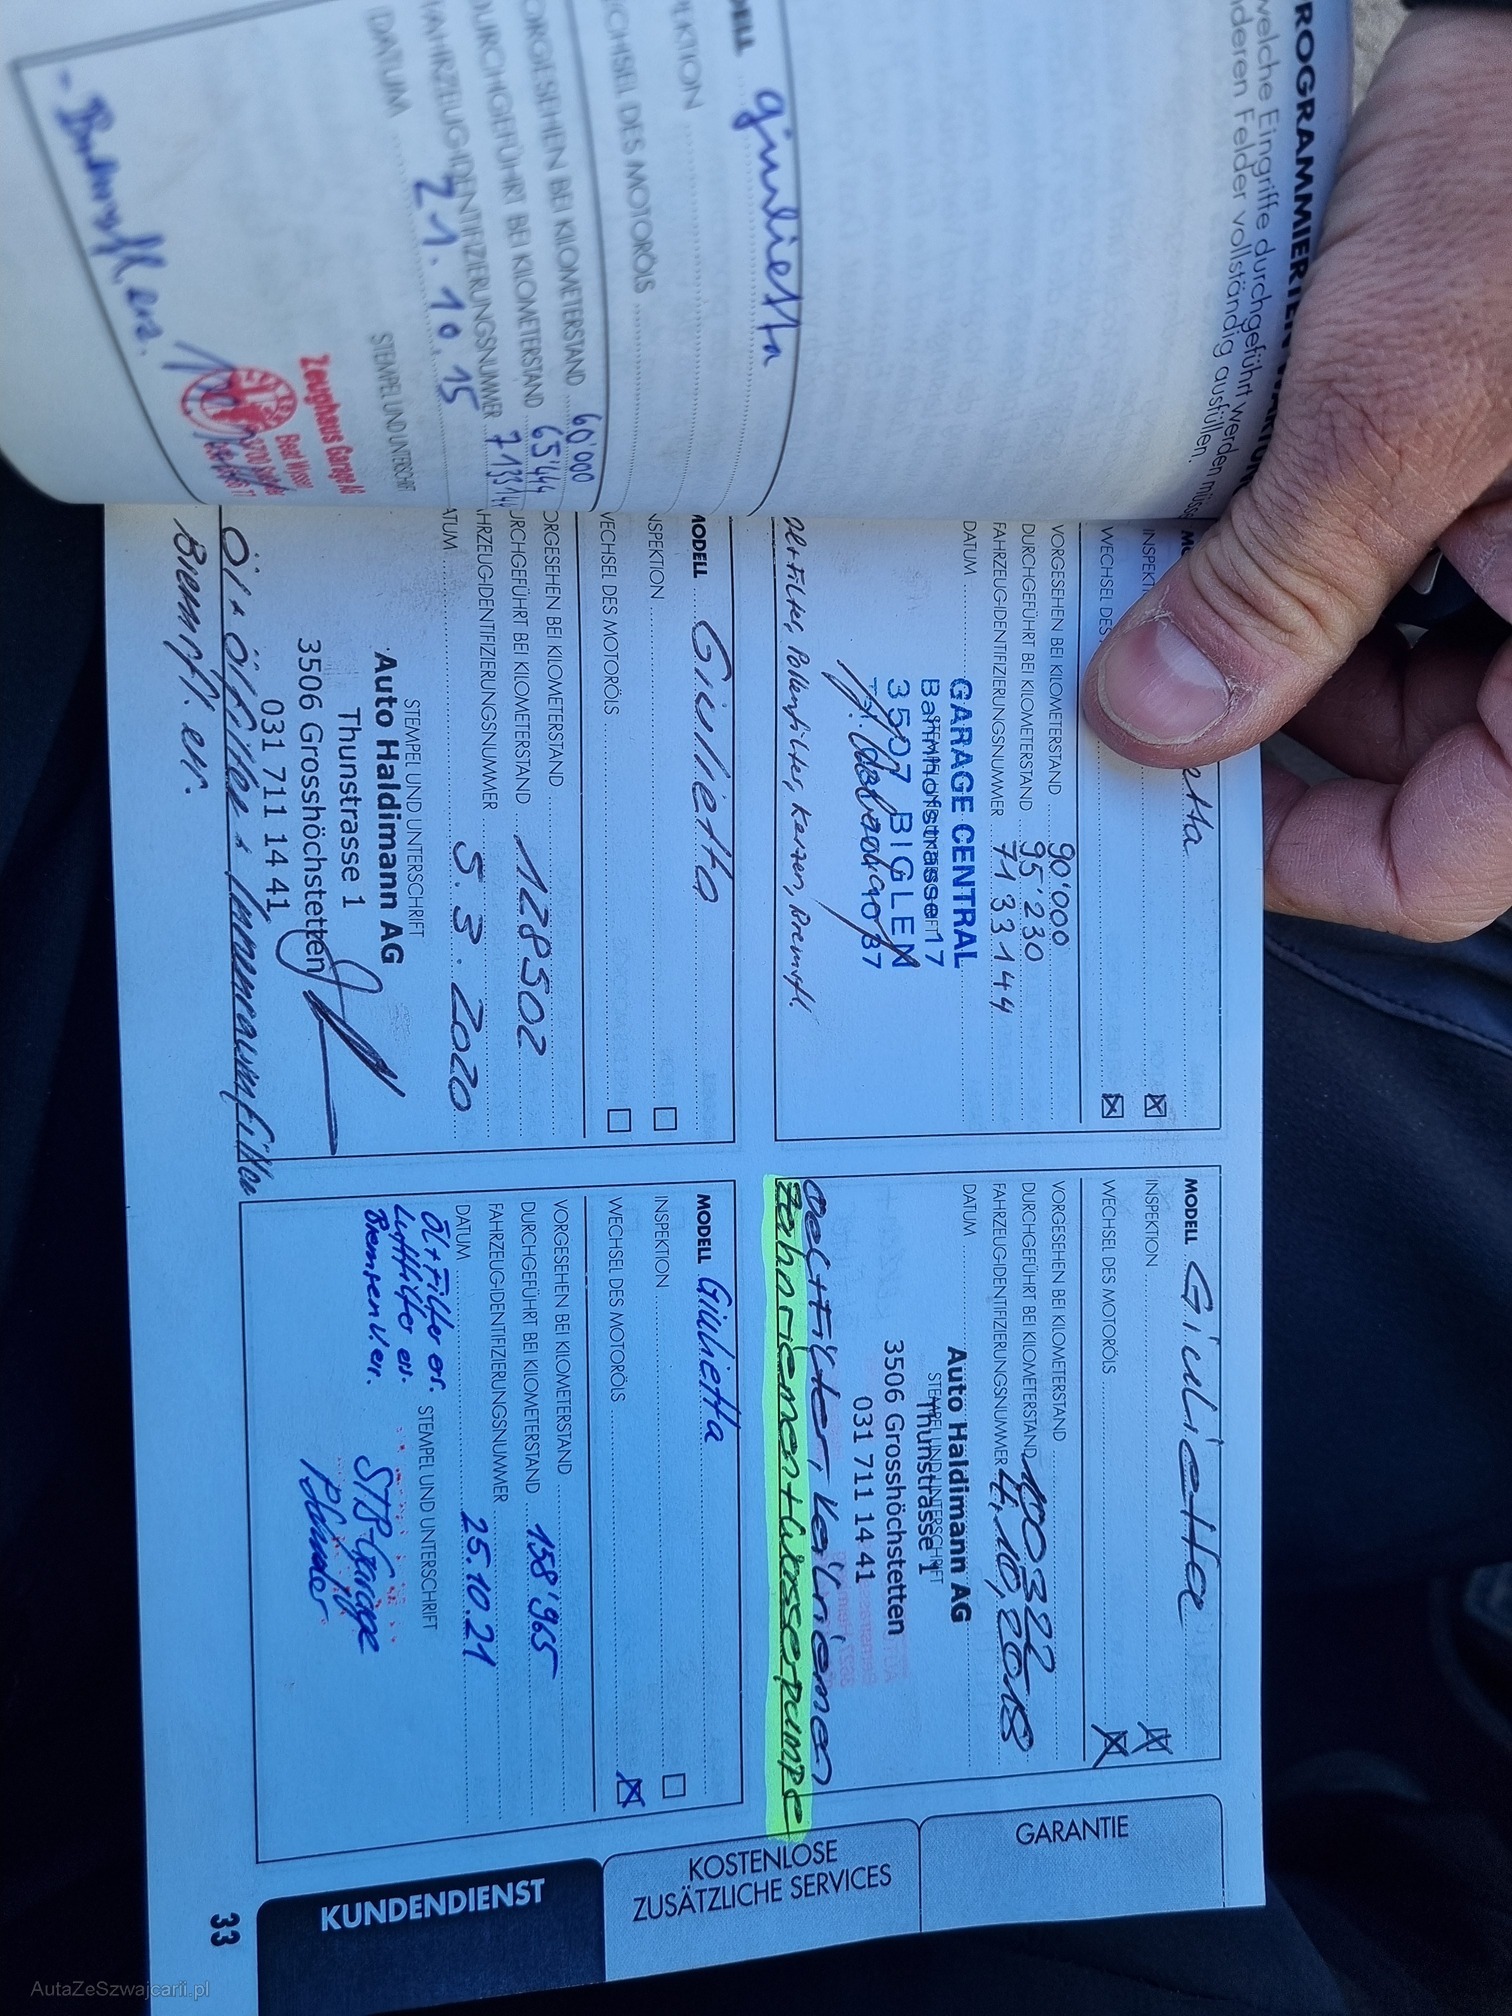 ROGRAMMIERTEN WARTUN
welche Eingriffe durchgeführt werden müss
nderen Felder vollständig ausfüllen.
DELL giulietta
PEKTION
CHSEL DES MOTORÖLS
ORGESEHEN BEI KILOMETERSTAND 60'000
DURCHGEFÜHRT BEI KILOMETERSTAND 65'444
FAHRZEUG-IDENTIFIZIERUNGSNUMMER 713314
DATUM 21.10.15
STEMPEL UND UNTERSCHRIFT
Zeughaus Garage AG
- Bremsfl. ers.
etta
INSPEKT
WECHSEL DES
VORGESEHEN BEI KILOMETERSTAND 90'000
DURCHGEFÜHRT BEI KILOMETERSTAND 95'230
FAHRZEUG-IDENTIFIZIERUNGSNUMMER 7133144
DATUM
GARAGE CENTRAL
Bahnhofstrasse 17
3507 BIGLEN
Öl+Filter, Pollenfilter, Kerzen, Bremsfl.
MODELL Giulietta
INSPEKTION
WECHSEL DES MOTORÖLS
VORGESEHEN BEI KILOMETERSTAND
DURCHGEFÜHRT BEI KILOMETERSTAND
FAHRZEUG-IDENTIFIZIERUNGSNUMMER 4,10,2018
DATUM
Auto Haldimann AG
STEMPEL UND UNTERSCHRIFT
Thunstrasse 1
3506 Grosshöchstetten
031 711 14 41
Oel+Filter, Keilriemen
Zahnriemen+Wasserpumpe
MODELL Giulietta
NSPEKTION
WECHSEL DES MOTORÖLS
ORGESEHEN BEI KILOMETERSTAND
URCHGEFÜHRT BEI KILOMETERSTAND 128502
HRZEUG-IDENTIFIZIERUNGSNUMMER
ATUM 5.3.2020
STEMPEL UND UNTERSCHRIFT
Auto Haldimann AG
Thunstrasse 1
3506 Grosshöchstetten
031 711 14 41
Öl + Ölfilter + Innenraumfilter
Bremsfl. er.
MODELL Giulietta
INSPEKTION
WECHSEL DES MOTORÖLS
VORGESEHEN BEI KILOMETERSTAND
DURCHGEFÜHRT BEI KILOMETERSTAND 158'965
FAHRZEUG-IDENTIFIZIERUNGSNUMMER
DATUM 25.10.21
ÖL+Filter er. STEMPEL UND UNTERSCHRIFT
Luftfilter er.
Bremsen V. er.
STB Garage
GARANTIE
KOSTENLOSE
ZUSÄTZLICHE SERVICES
KUNDENDIENST
33
AutaZeSzwajcarii.pl